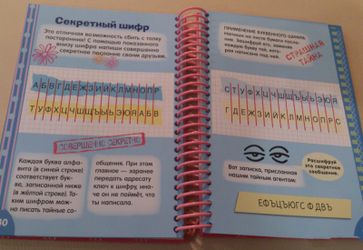 Секретный шифр
Это отличная возможность сбить с толку
посторонних! С помощью показанного
внизу шифра напиши совершенно
секретное послание своим друзьям.
АБВГДЕЖЗИЙКЛМНОПР
ТУФХЦЧШЩЪЫЬЭЮЯАБВ
СОВЕРШЕННО СЕКРЕТНО
Каждая буква алфа-
вита (в синей строке)
соответствует бук-
ве, записанной ниже
(в жёлтой строке). Та-
ким шифром мож-
но писать тайные со-
общения. При этом
главное — заранее
передать адресату
ключ к шифру, ина-
че он не поймёт, что
ты написала.
ПРИМЕНЕНИЕ БУКВЕННОГО
СТРАШНАЯ
ТАЙНА
СТУФХЦЧШЩЪЫЬЭЮЯ
ГДЕЖЗИЙКЛМНОПРС
Вот записка, присланная
нашим тайным агентом:
Расшифруй
это секретное
сообщение.
ЕФЪЦЪЮГС Ф ДВЪ